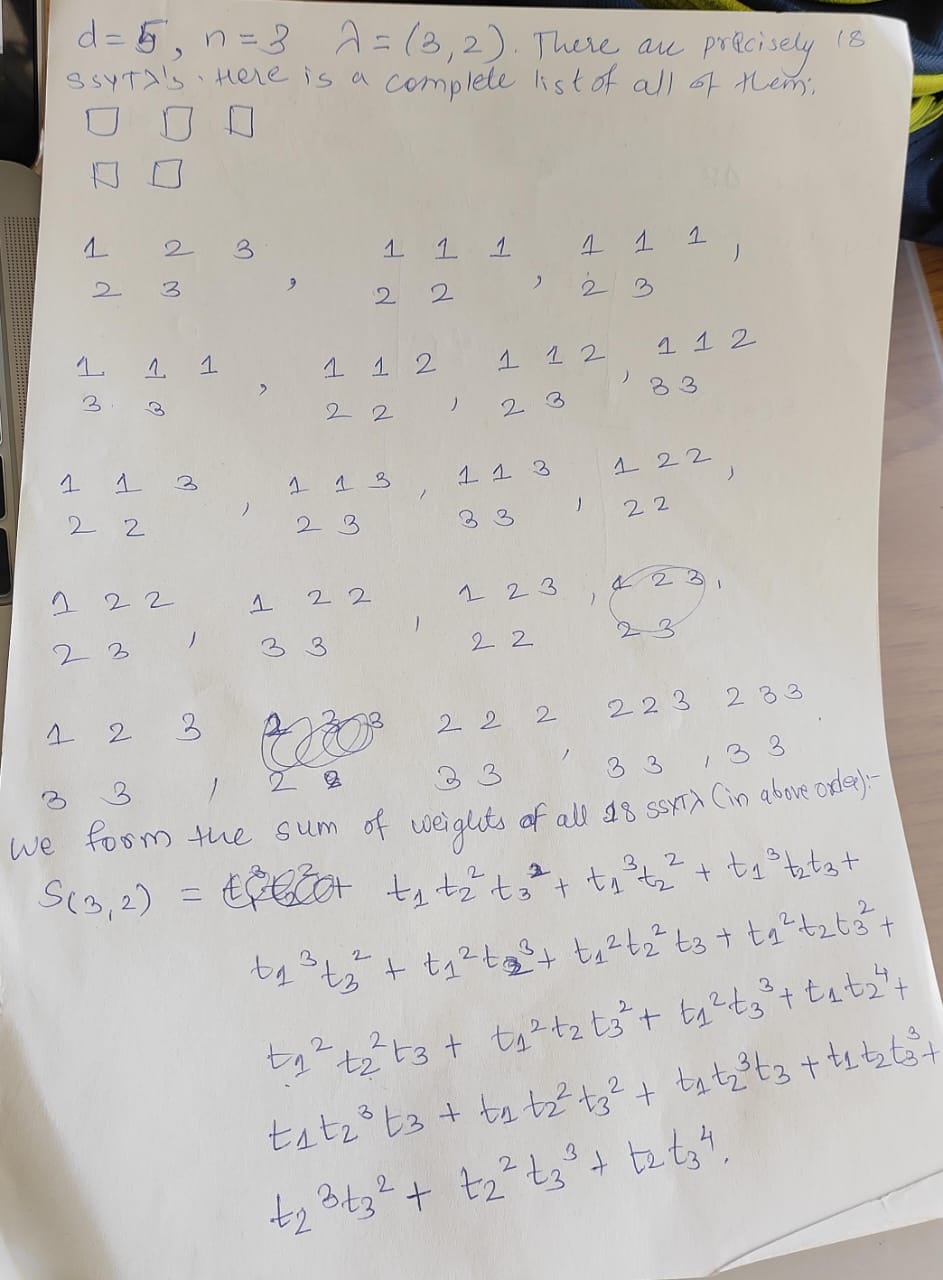 d=5, n=3 λ=(3,2). There are precisely 18
SSYTλ's. Here is a complete list of all of them:
1 2 3 , 1 1 1 , 1 1 1 ,
2 3 2 2 2 3
1 1 1 , 1 1 2 , 1 1 2 , 1 1 2
3 3 2 2 2 3 3 3
1 1 3 , 1 1 3 , 1 1 3 , 1 2 2 ,
2 2 2 3 3 3 2 2
1 2 2 , 1 2 2 , 1 2 3 , 1 2 3 ,
2 3 3 3 2 2 2 3
1 2 3 , 2 2 2 , 2 2 3 , 2 3 3
3 3 2 3 3 3 3 3 3
We form the sum of weights of all 18 SSYTλ (in above order):-
S(3,2) = t₁t₂²t₃² + t₁³t₂² + t₁³t₂t₃ +
t₁³t₃² + t₁²t₂³ + t₁²t₂²t₃ + t₁²t₂t₃² +
t₁²t₂²t₃ + t₁²t₂t₃² + t₁²t₃³ + t₁t₂⁴ +
t₁t₂³t₃ + t₁t₂²t₃² + t₁t₂³t₃ + t₁t₂t₃³ +
t₂³t₃² + t₂²t₃³ + t₂t₃⁴.